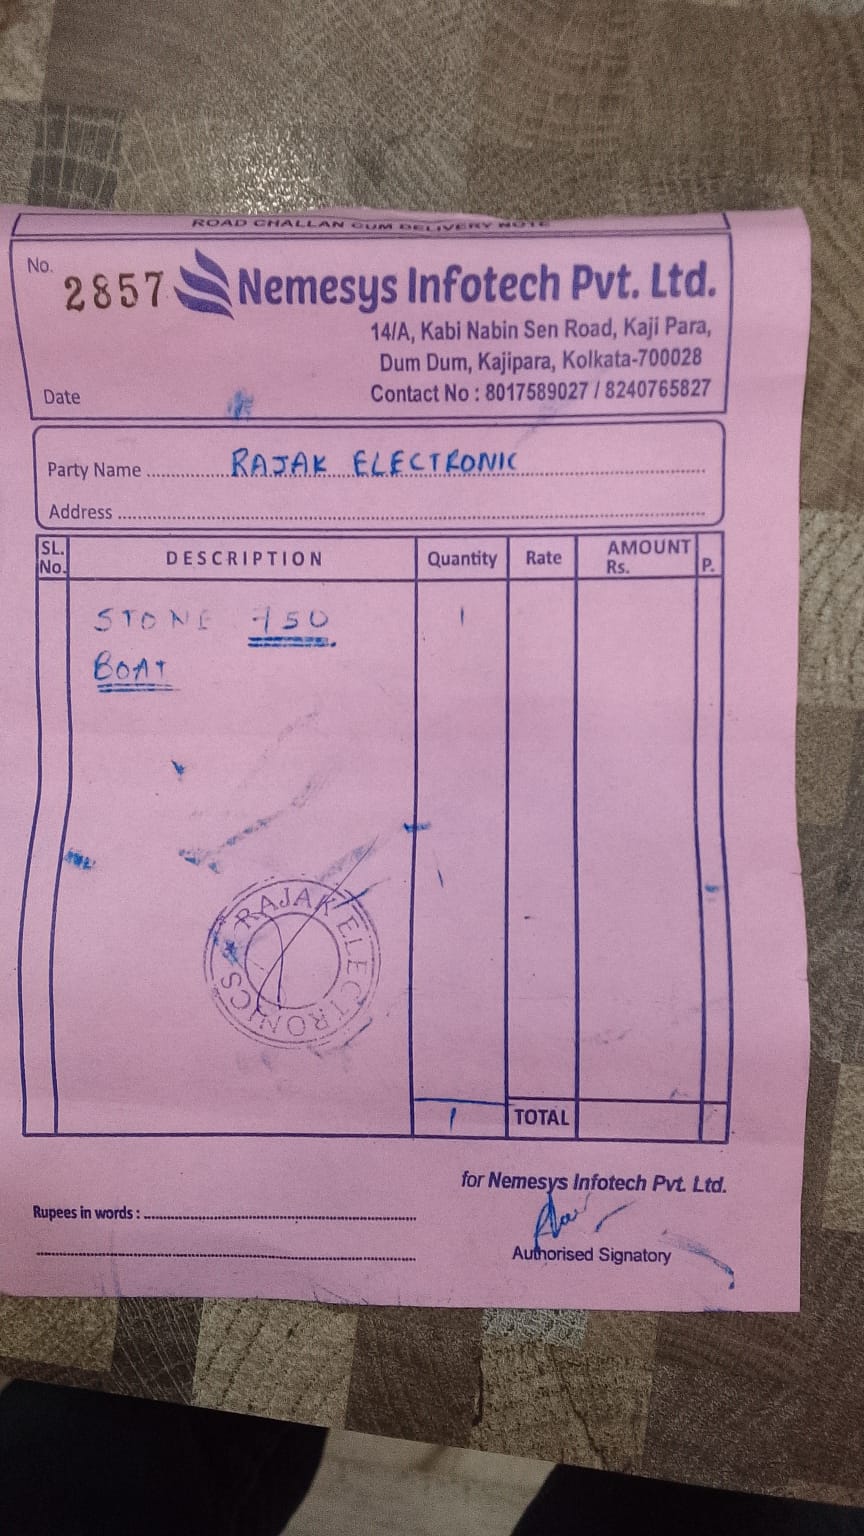 ROAD CHALLAN CUM DELIVERY NOTE
No. 2857
Nemesys Infotech Pvt. Ltd.
14/A, Kabi Nabin Sen Road, Kaji Para,
Dum Dum, Kajipara, Kolkata-700028
Date
Contact No : 8017589027 / 8240765827
Party Name RAJAK ELECTRONIC
Address
SL. No. DESCRIPTION Quantity Rate AMOUNT Rs. P.
STONE 750 1
BOAT
RAJAK ELECTRONICS
1 TOTAL
for Nemesys Infotech Pvt. Ltd.
Rupees in words :
Authorised Signatory